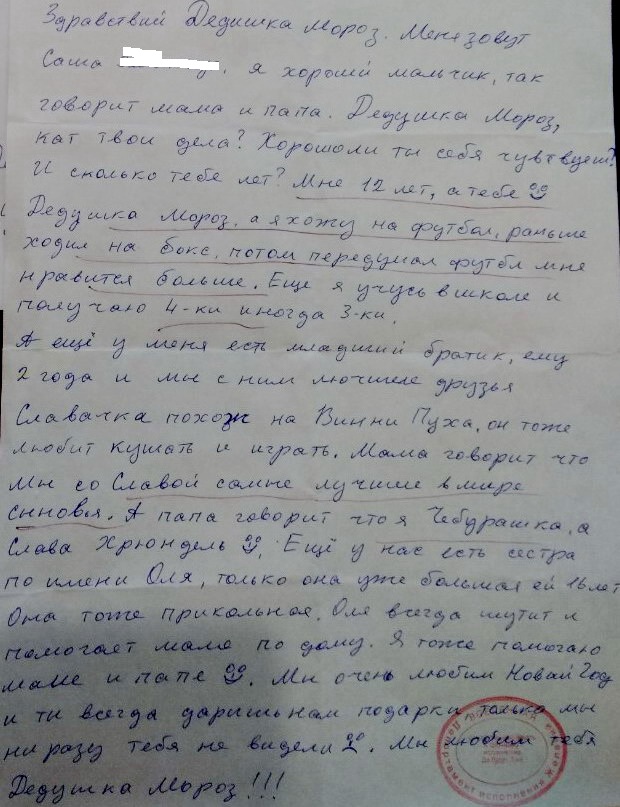 Здравствий Дедушка Мороз. Меня зовут
Саша . я хороший мальчик, так
говорит мама и папа. Дедушка Мороз,
кат твои дела? Хорошоли ты себя чувтвуеш?
И сколько тебе лет? Мне 12 лет, а тебе
Дедушка Мороз, а я хожу на футбол, раньше
ходил на бокс, потом передумал футбл мне
нравится больше. Еще я учусь в школе и
получаю 4-ки иногда 3-ки.
А ещё у меня есть младший братик, ему
2 года и мы с ним лючшие друзья
Славачка похож на Винни Пуха, он тоже
любит кушать и играть. Мама говорит что
мы со Славой самые лучшие в мире
сыновья. А папа говорит что я Чебурашка, а
Слава Хрюндель. Ещё у нас есть сестра
по имени Оля, только она уже большая ей 16 лет
Она тоже прикольная. Оля всегда шутит и
помогает маме по дому. Я тоже помогаю
маме и папе. Мы очень любим Новый Год
и ты всегда даришь нам подарки только мы
ни разу тебя не видели. Мы любим тебя
Дедушка Мороз!!!
Департамент исполнения желаний